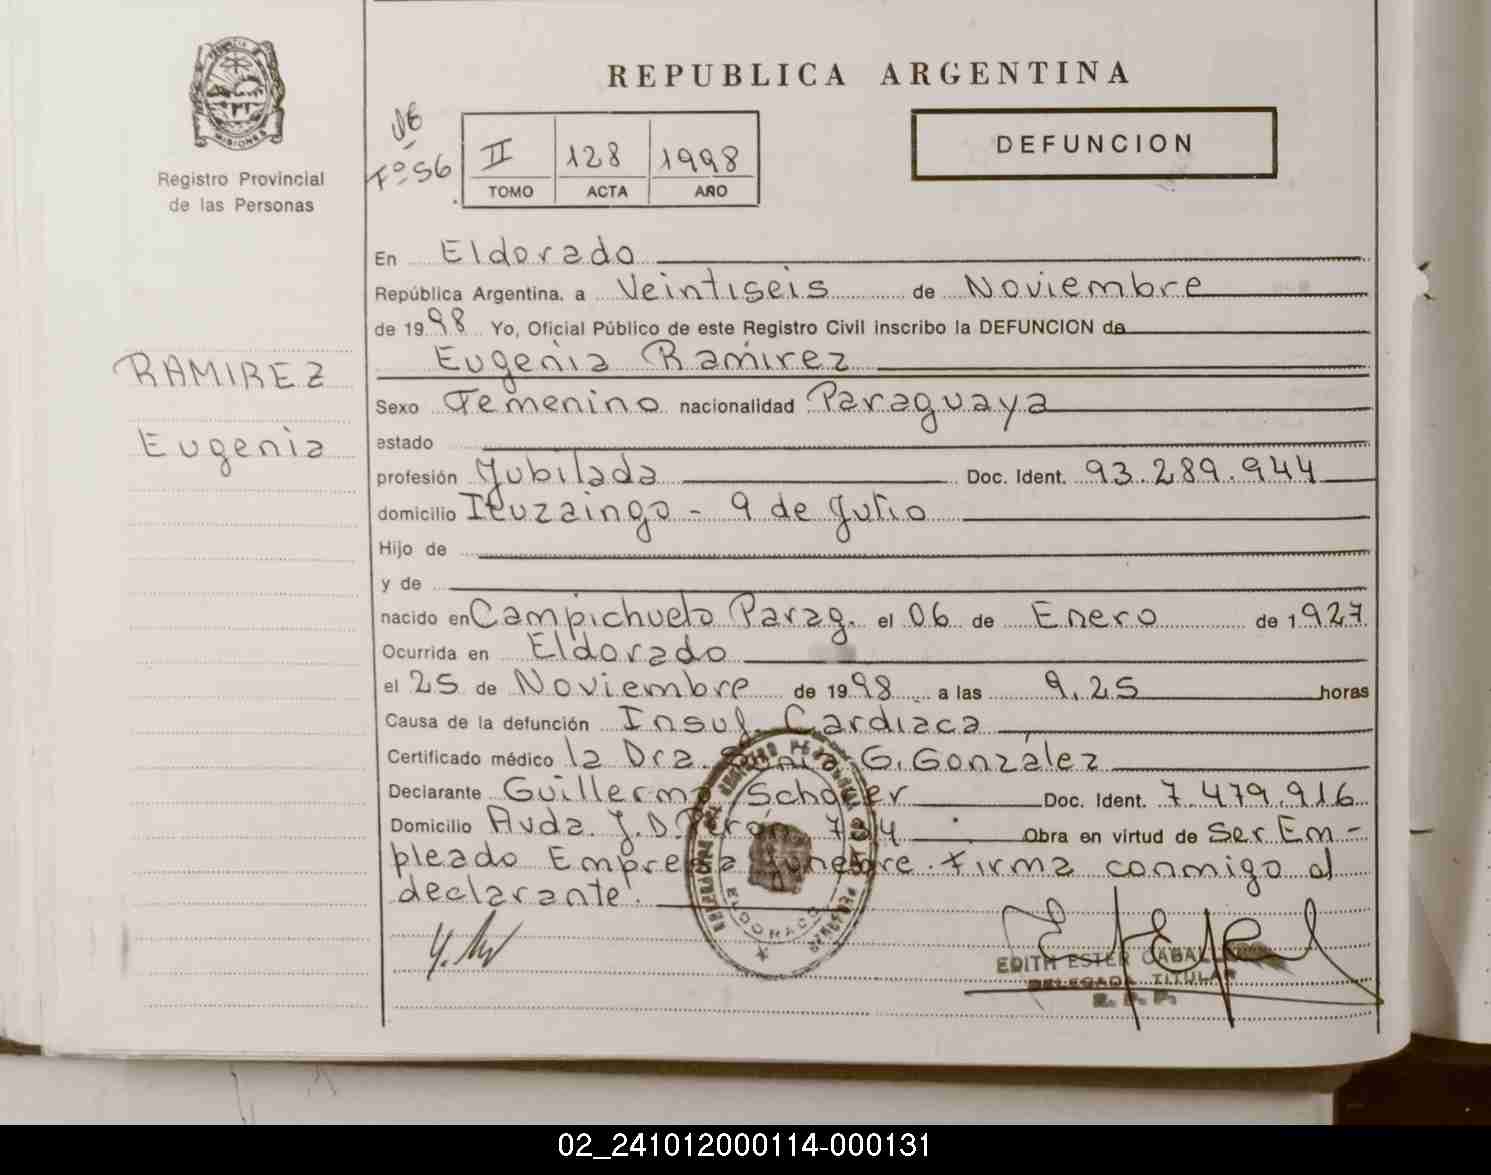 PROVINCIA DE
MISIONES
Registro Provincial
de las Personas
RAMIREZ
Eugenia
REPUBLICA ARGENTINA
Fº 56
II 128 1998
TOMO ACTA AÑO
DEFUNCION
En Eldorado
República Argentina, a Veintiseis de Noviembre
de 1998 Yo, Oficial Público de este Registro Civil inscribo la DEFUNCION de
Eugenia Ramirez
Sexo Femenino nacionalidad Paraguaya
estado
profesión Jubilada Doc. Ident. 93.289.944
domicilio Ituzaingo - 9 de Julio
Hijo de
y de
nacido en Campichuelo Parag. el 06 de Enero de 1927
Ocurrida en Eldorado
el 25 de Noviembre de 1998 a las 9,25 horas
Causa de la defunción Insuf. Cardiaca
Certificado médico la Dra. G. González
Declarante Guillermo Doc. Ident. 7.479.916
Domicilio Avda. J.D. Perón Obra en virtud de Ser Em-
pleado Empresa funebre. Firma conmigo el
declarante!
ELDORADO
EDITH ESTER
DELEGADA TITULAR
R. P. P.
02_241012000114-000131